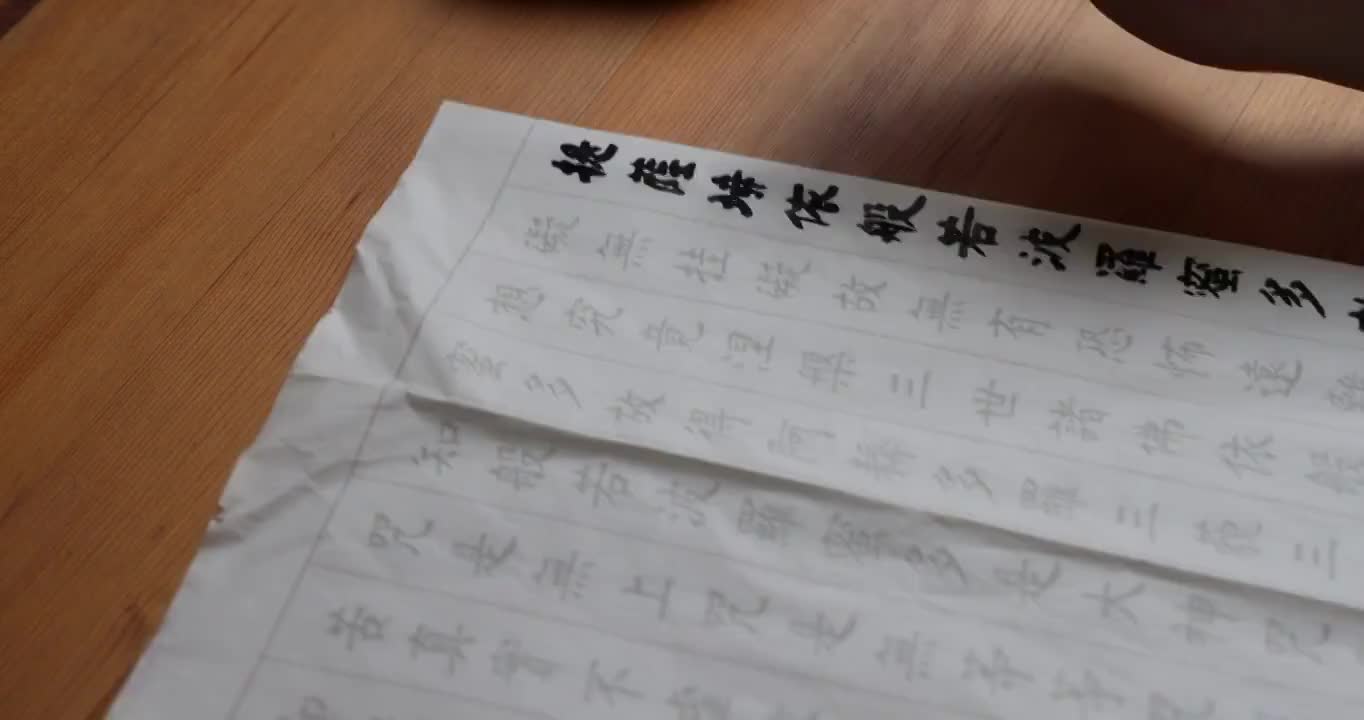 提薩埵依般若波羅蜜多
礙無挂礙故無有恐怖遠離
想究竟涅槃三世諸佛依般
蜜多故得阿耨多羅三藐三
知般若波羅蜜多是大神咒
咒是無上咒是無等等咒
苦真實不虛